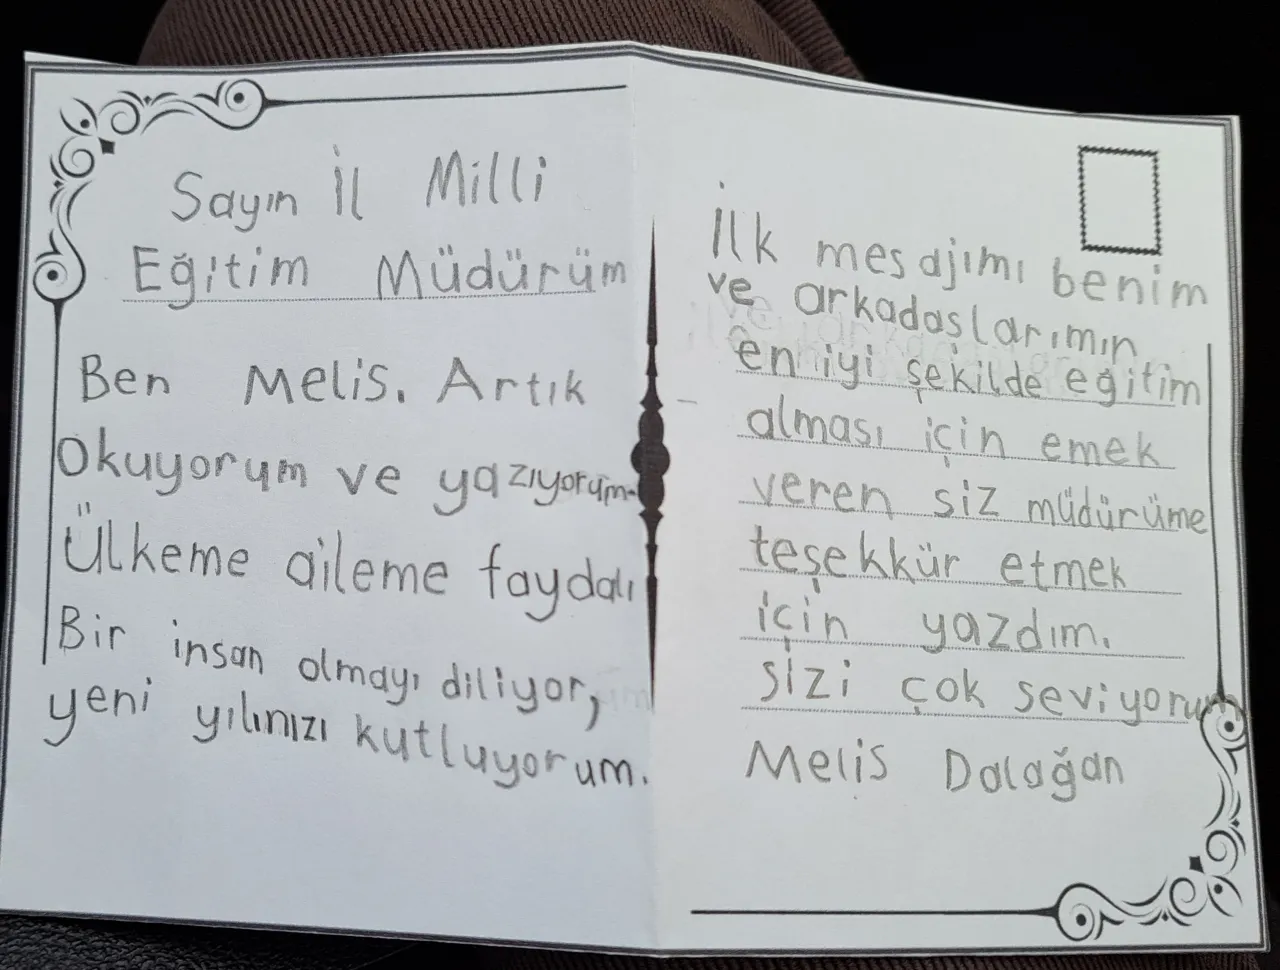 Sayın İl Milli
Eğitim Müdürüm
Ben Melis. Artık
Okuyorum ve yazıyorum.
Ülkeme aileme faydalı
Bir insan olmayı diliyor,
yeni yılınızı kutluyorum.
İlk mesajımı benim
ve arkadaşlarımın
en iyi şekilde eğitim
alması için emek
veren siz müdürüme
teşekkür etmek
için yazdım.
sizi çok seviyorum
Melis Dalağan